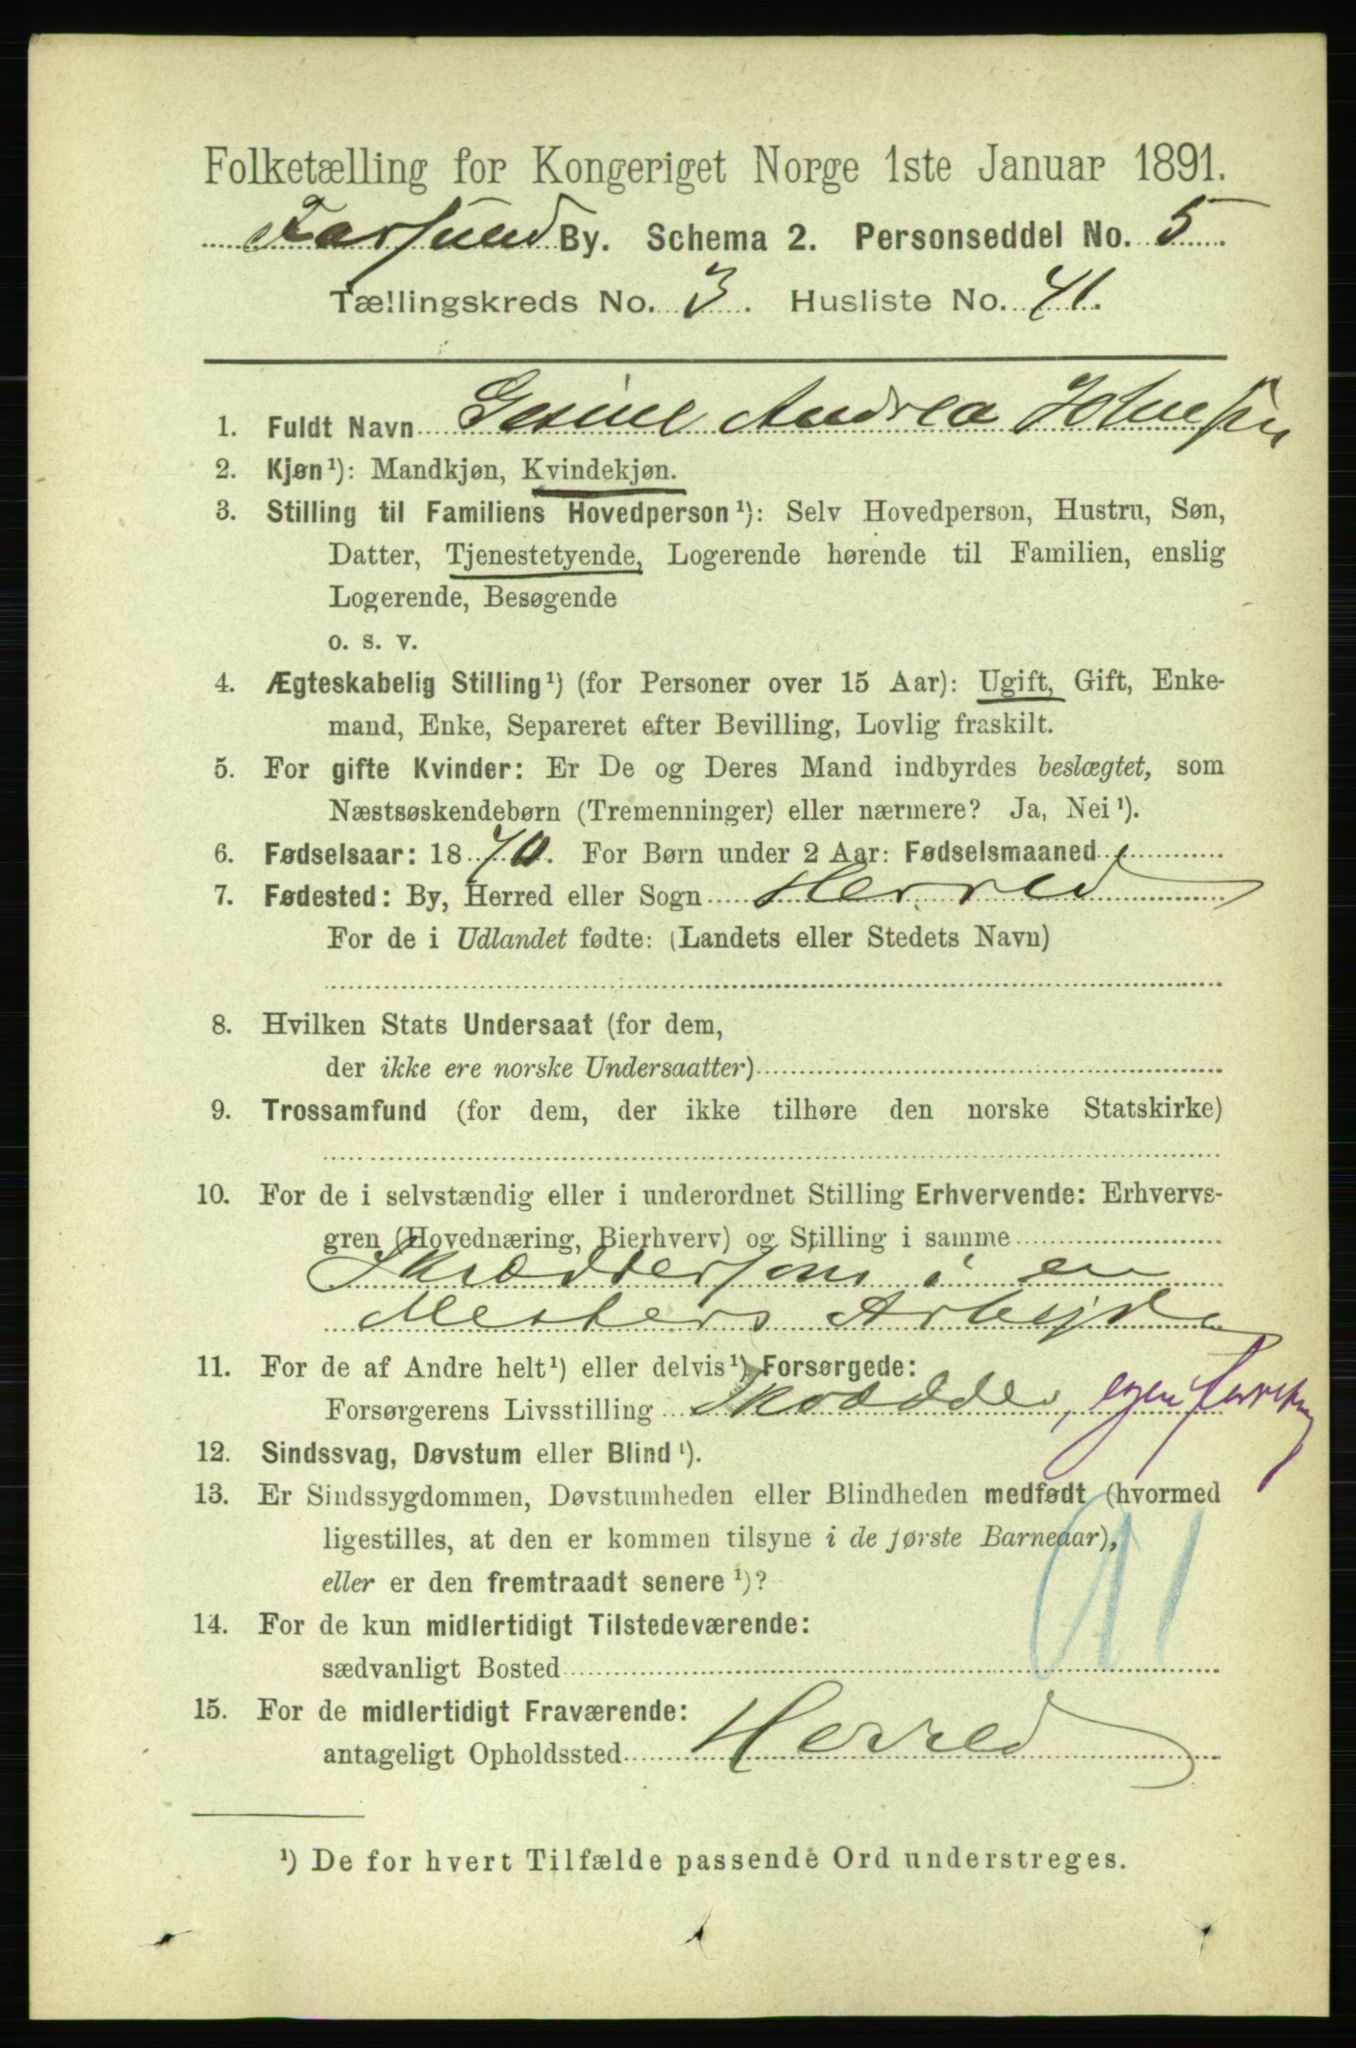 Folketælling for Kongeriget Norge 1ste Januar 1891.
Farsund By. Schema 2. Personseddel No. 5
Tællingskreds No. 3. Husliste No. 41.
1. Fuldt Navn Gesine Andrea Johnsen
2. Kjøn¹): Mandkjøn, Kvindekjøn.
3. Stilling til Familiens Hovedperson¹): Selv Hovedperson, Hustru, Søn,
Datter, Tjenestetyende, Logerende hørende til Familien, enslig
Logerende, Besøgende
o. s. v.
4. Ægteskabelig Stilling¹) (for Personer over 15 Aar): Ugift, Gift, Enke-
mand, Enke, Separeret efter Bevilling, Lovlig fraskilt.
5. For gifte Kvinder: Er De og Deres Mand indbyrdes beslægtet, som
Næstsøskendebørn (Tremenninger) eller nærmere? Ja, Nei¹).
6. Fødselsaar: 1870. For Børn under 2 Aar: Fødselsmaaned
7. Fødested: By, Herred eller Sogn Herred
For de i Udlandet fødte: (Landets eller Stedets Navn)
8. Hvilken Stats Undersaat (for dem,
der ikke ere norske Undersaatter)
9. Trossamfund (for dem, der ikke tilhøre den norske Statskirke)
10. For de i selvstændig eller i underordnet Stilling Erhvervende: Erhvervs-
gren (Hovednæring, Bierhverv) og Stilling i samme
i en
Mesters Arbejde
11. For de af Andre helt¹) eller delvis¹) Forsørgede:
Forsørgerens Livsstilling Skrædder, egen
12. Sindssvag, Døvstum eller Blind¹).
13. Er Sindssygdommen, Døvstumheden eller Blindheden medfødt (hvormed
ligestilles, at den er kommen tilsyne i de første Barneaar),
eller er den fremtraadt senere¹)?
14. For de kun midlertidigt Tilstedeværende:
sædvanligt Bosted
15. For de midlertidigt Fraværende:
antageligt Opholdssted Herred
¹) De for hvert Tilfælde passende Ord understreges.